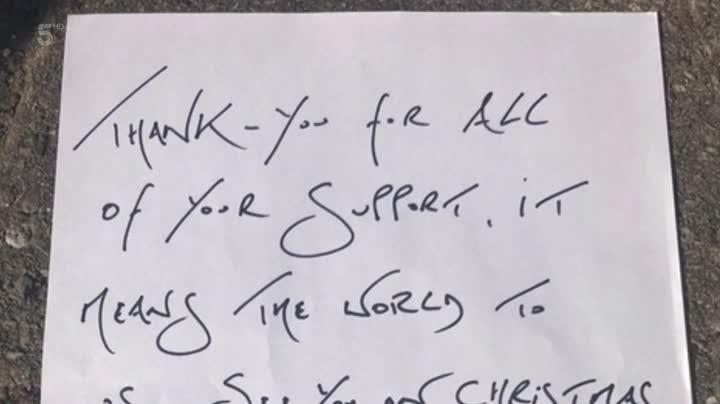 5 HD
THANK-YOU FOR ALL
OF YOUR SUPPORT, IT
MEANS THE WORLD TO
SEE YOU CHRISTMAS